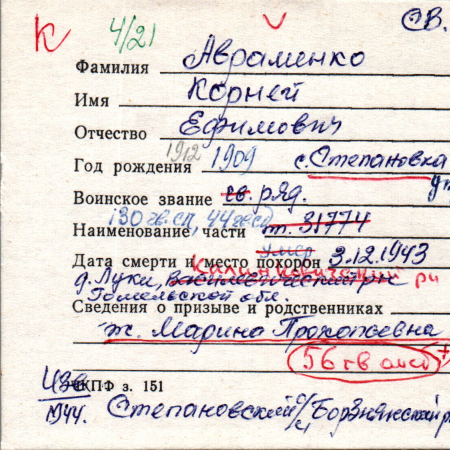 К 4/21 СВ.
Фамилия Авраменко
Имя Корней
Отчество Ефимович
1912
Год рождения 1909 с. Степановка
Воинское звание гв. ряд.
130 гв. сп, 44 гв. сд
Наименование части п. 31774
умер
Дата смерти и место похорон 3.12.1943
Калинковический рн
д. Луки,
Гомельской обл.
Сведения о призыве и родственниках
ж. Марина Прокопьевна
56 гв
КПФ з. 151
1944. Степановский с/с, Борзнянский р